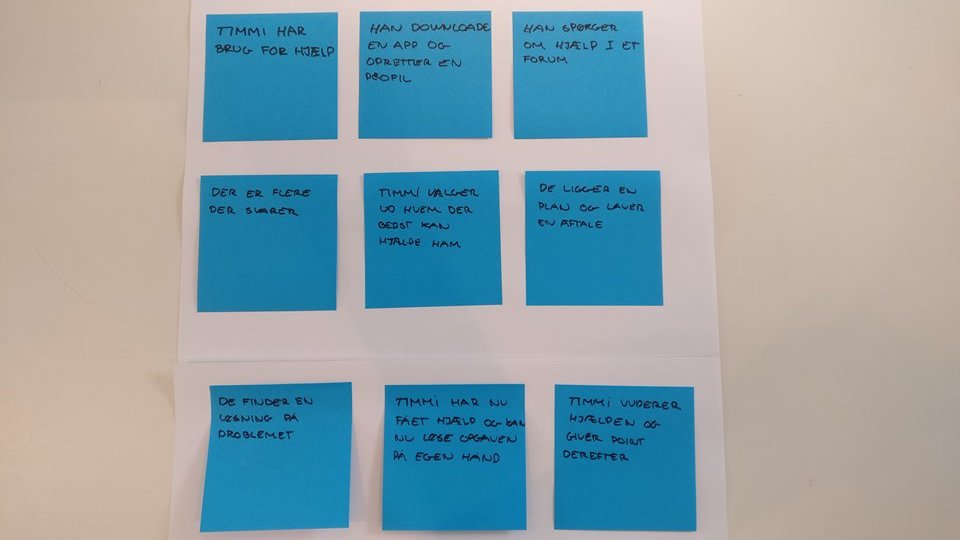 TIMMI HAR
BRUG FOR HJÆLP
HAN DOWNLOADE
EN APP OG
OPRETTER EN
PROFIL
HAN SPØRGER
OM HJÆLP I ET
FORUM
DER ER FLERE
DER SVARER
TIMMI VÆLGER
UD HVEM DER
BEDST KAN
HJÆLPE HAM
DE LIGGER EN
PLAN OG LAVER
EN AFTALE
DE FINDER EN
LØSNING PÅ
PROBLEMET
TIMMI HAR NU
FÅET HJÆLP OG KAN
NU LØSE OPGAVEN
PÅ EGEN HÅND
TIMMI VUDERER
HJÆLPEN OG
GIVER POINT
DEREFTER